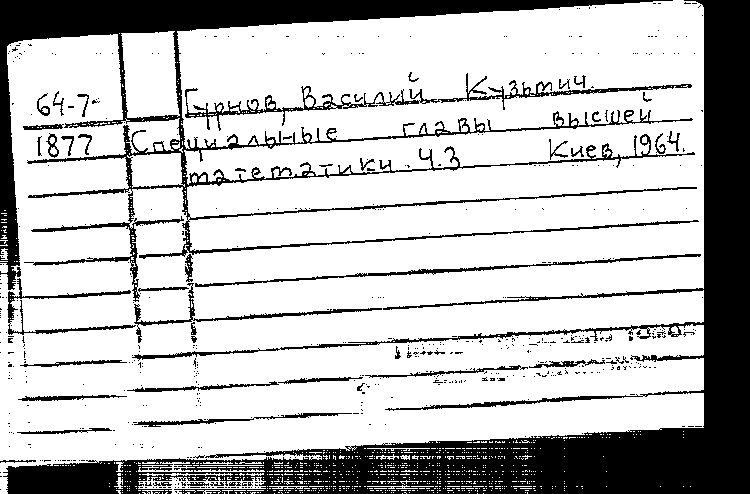 64-7-
1877
Гурнов, Василий Кузьмич.
Специальные главы высшей
математики. Ч.3 Киев, 1964.